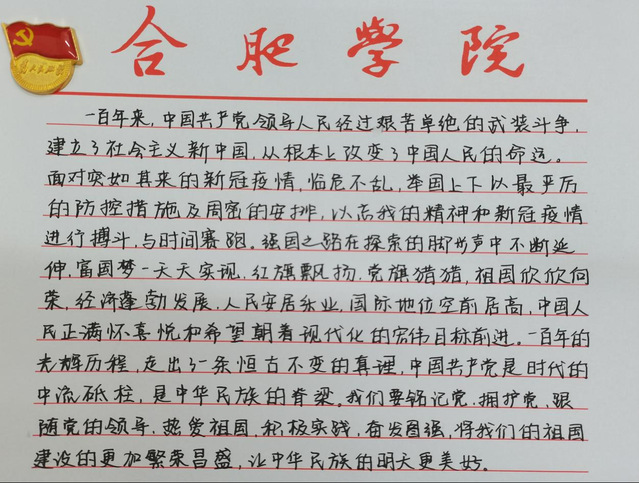 合肥学院
一百年来,中国共产党领导人民经过艰苦卓绝的武装斗争,
建立了社会主义新中国,从根本上改变了中国人民的命运。
面对突如其来的新冠疫情,临危不乱,举国上下以最严厉
的防控措施及周密的安排,以忘我的精神和新冠疫情
进行搏斗,与时间赛跑。强国之路在探索的脚步声中不断延
伸,富国梦一天天实现,红旗飘扬,党旗猎猎,祖国欣欣向
荣,经济蓬勃发展,人民安居乐业,国际地位空前居高,中国人
民正满怀喜悦和希望朝着现代化的宏伟目标前进。一百年的
光辉历程,走出了一条恒古不变的真理,中国共产党是时代的
中流砥柱,是中华民族的脊梁。我们要铭记党,拥护党,跟
随党的领导,热爱祖国,积极实践,奋发图强,将我们的祖国
建设的更加繁荣昌盛,让中华民族的明天更美好。